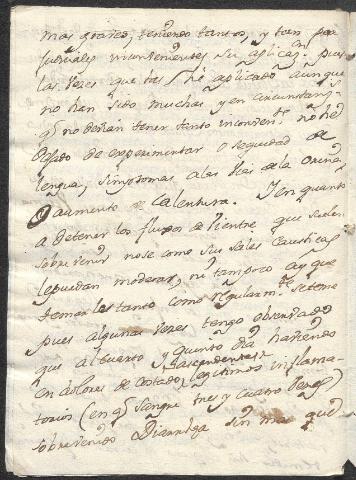 mas graves, teniendo tantos, y tan per
judiciales inconvenientes su aplicac.on pues
las vezes que tres he aplicado aunque
no han sido muchas y en circunstanc.s
q.e no devian tener tanto inconven.te no he
dejado de experimentar o sequedad de
lengua, simptomas a las vias de la orina
o aumento de Calentura. Y en quanto
a detener los fluxos de vientre que suelen
sobrevenir no se como sus sales Causticas
le puedan moderar, ni tampoco ay que
temerles tanto como regularm.te se teme
pues algunas vezes tengo observado
que al quarto y quinto dia haviendo
en dolores de costado legitimos inflama
torios (en q.e sangre tres y cuatro vezes)
sobrevenido Diarrhea sin mas que